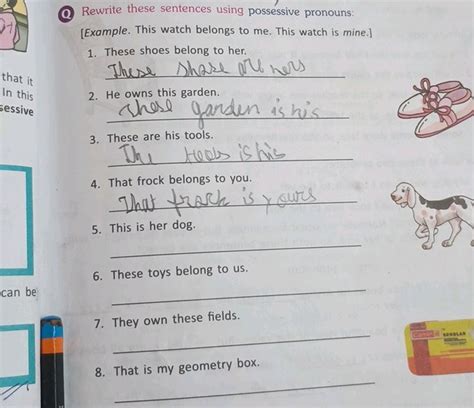 Q Rewrite these sentences using possessive pronouns:
[Example. This watch belongs to me. This watch is mine.]
1. These shoes belong to her.
These shose are hers
that it
In this
sessive
2. He owns this garden.
These garden is his
3. These are his tools.
The tools is his
4. That frock belongs to you.
That frock is yours
5. This is her dog.
6. These toys belong to us.
can be
7. They own these fields.
8. That is my geometry box.